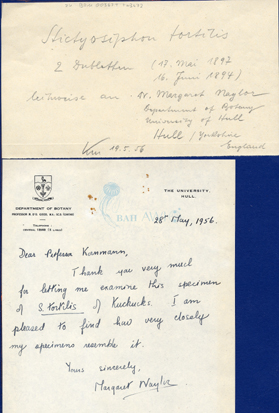 Stictyosiphon tortilis
2 Dubletten (17. Mai 1897
16. Juni 1894)
leihweise an Dr. Margaret Naylor
Department of Botany
University of Hull
Hull / Yorkshire
19.5.56 England
DEPARTMENT OF BOTANY
THE UNIVERSITY,
HULL.
28th May, 1956.
Dear Professor Kanmann,
Thank you very much
for letting me examine this specimen
of S. tortilis of Kuckuck. I am
pleased to find how very closely
my specimens resemble it.
Yours sincerely,
Margaret Naylor.